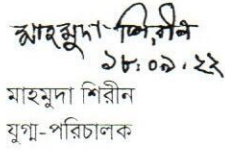 মাহমুদা শিরীন
১৮.০৯.২২
মাহমুদা শিরীন
যুগ্ম-পরিচালক